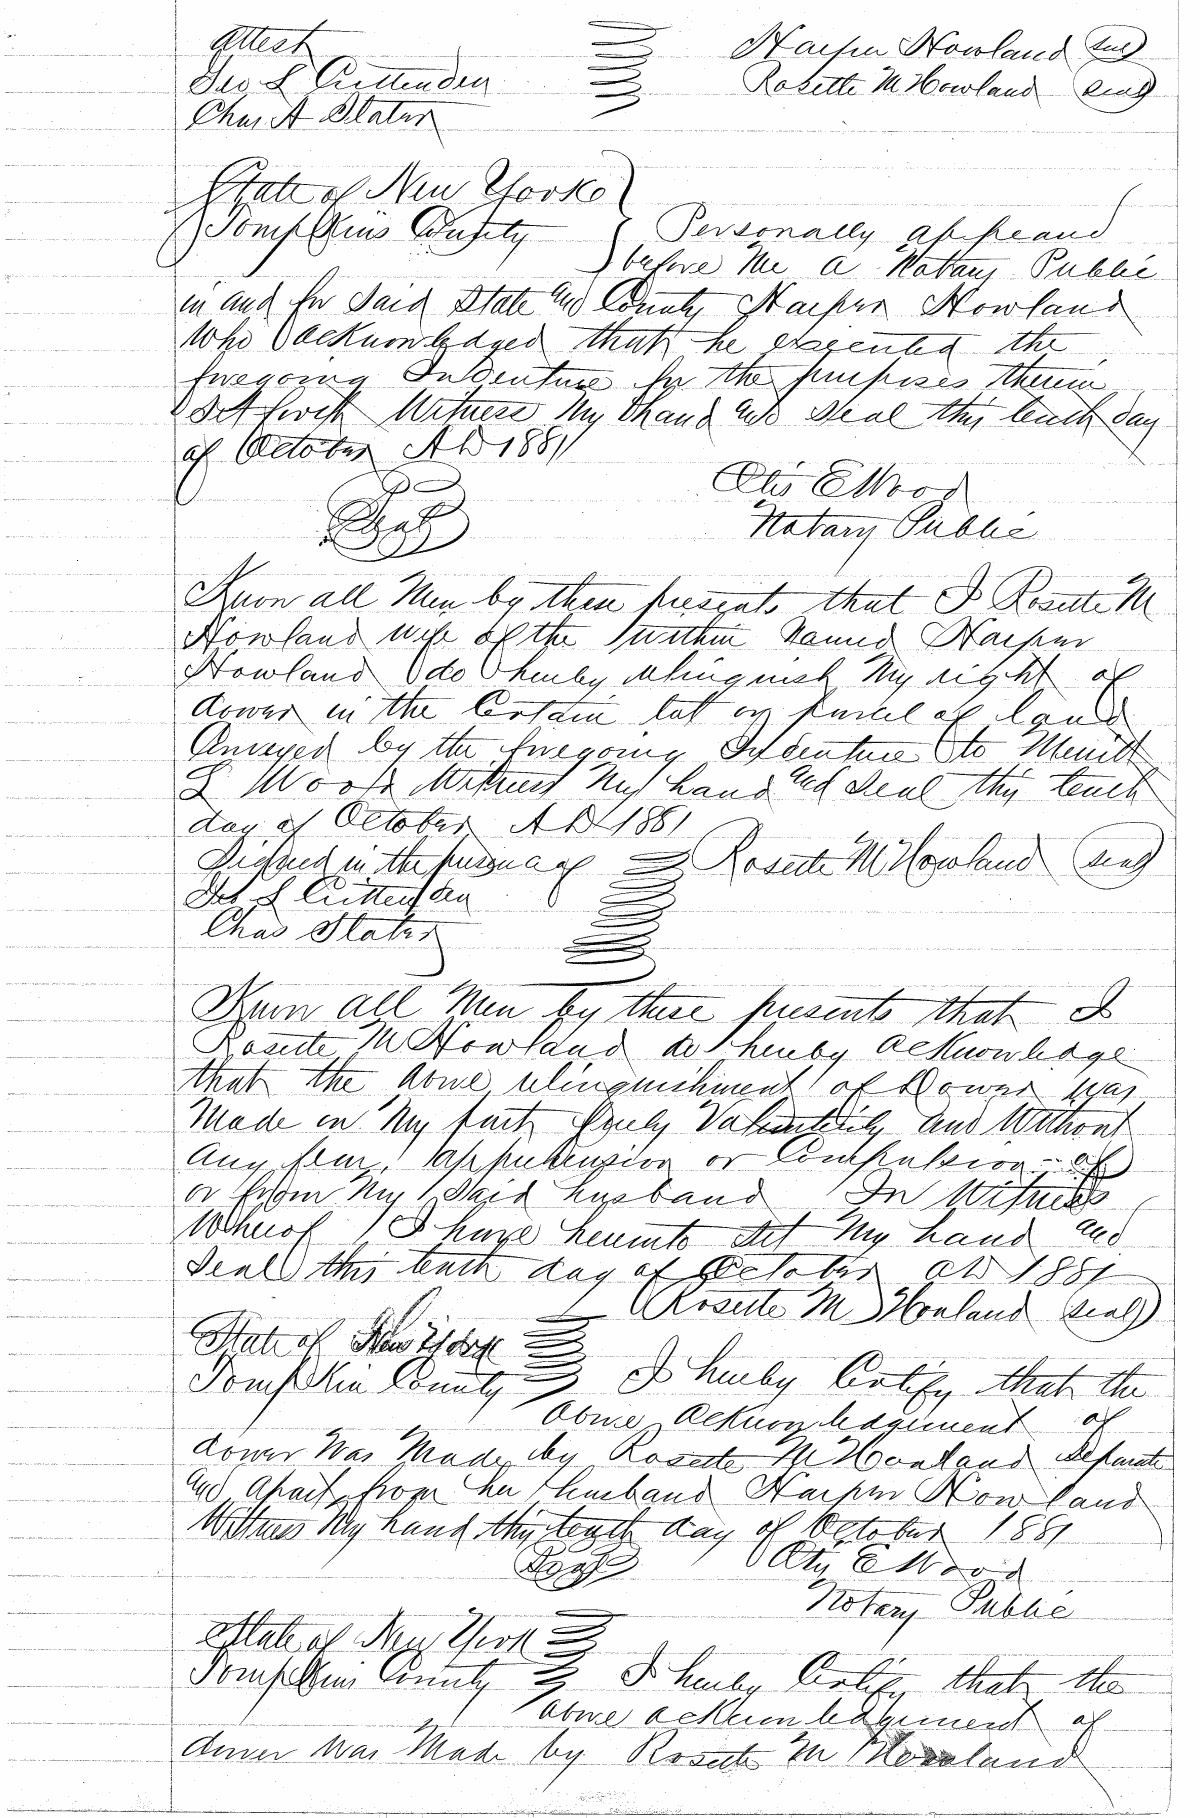 Attest Harper Howland (seal)
Geo L Crittenden Rosette M Howland (seal)
Chas A Slater
State of New York
Tompkins County Personally appeared
before Me a Notary Public
in and for Said State and County Harper Howland
Who acknowledged that he executed the
foregoing Indenture for the purposes therein
Set forth Witness My hand and Seal this tenth day
of October AD 1881
Otis E Wood
Seal Notary Public
Know all Men by these presents that I Rosette M
Howland wife of the within Named Harper
Howland do hereby relinquish My right of
dower in the Certain lot or parcel of land
Conveyed by the foregoing Indenture to Merritt
L Wood Witness My hand and Seal this tenth
day of October AD 1881
Signed in the presence of Rosette M Howland (seal)
Geo L Crittenden
Chas Slater
Know all Men by these presents that I
Rosette M Howland do hereby acknowledge
that the above relinquishment of Dower was
Made on My part freely Voluntarily and Without
Any fear, apprehension or Compulsion of
or from My Said husband In Witness
Whereof I have hereunto Set My hand and
Seal this tenth day of October AD 1881
Rosette M Howland (seal)
State of New York
Tompkin County I hereby Certify that the
above acknowledgement of
dower Was Made by Rosette M Howland Separate
and Apart from her husband Harper Howland
Witness My hand this tenth day of October 1881
Seal Otis E Wood
Notary Public
State of New York
Tompkins County I hereby Certify that the
above acknowledgement of
dower Was Made by Rosette M Howland